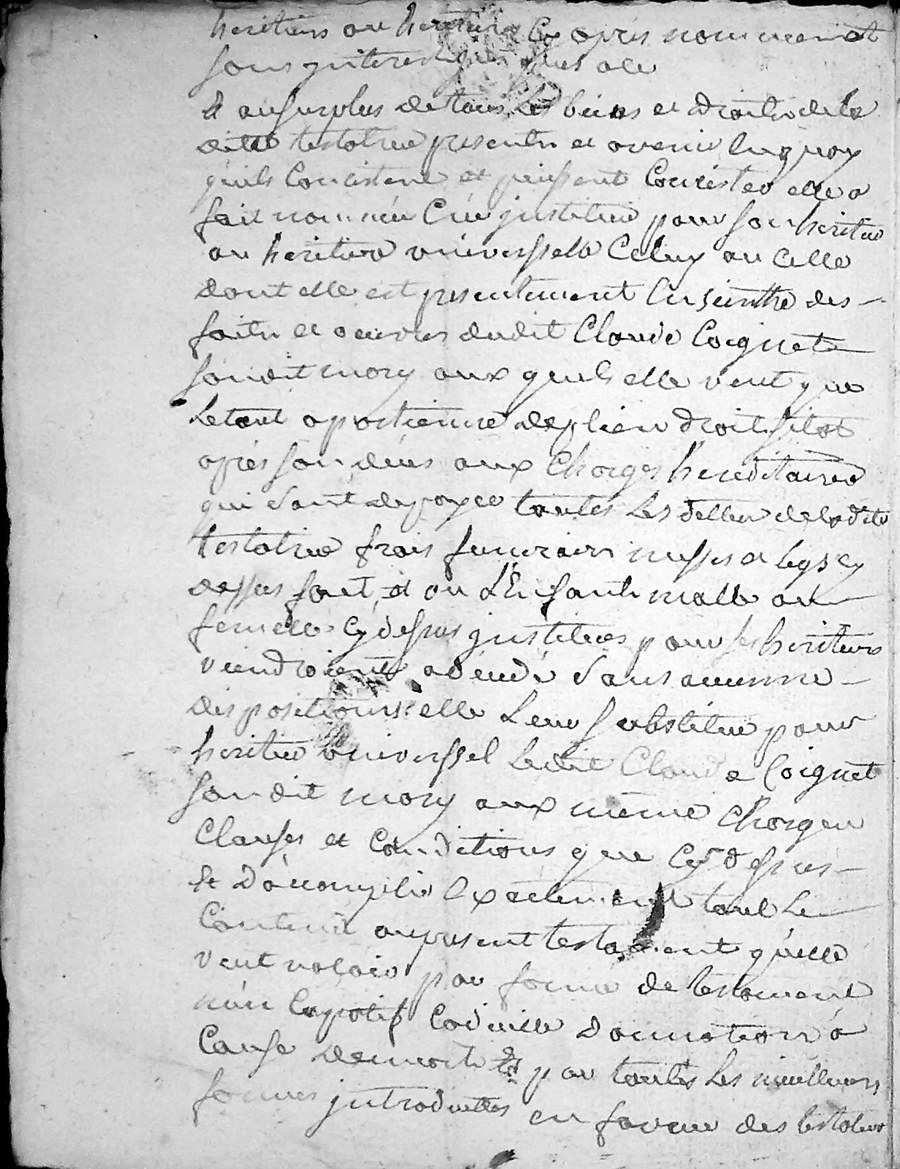 heritiers ou heritiere Cy apres nommement
sans interest jusques a ce
Et au surplus de tous les biens et droits de la
ditte testatrice presents et avenir en quoy
qu'ils Concistent et puissent Concister elle a
fait nommée Crée justitué pour son heritier
ou heritiere universselle Celuy ou Celle
dont elle est presentement Enseinthe des
faits et oeuvres dudit Claude Coignet
son dit mary aux quels elle veut que
le tout apartienne de plien droit sitot
apres son deces aux Charges hereditaires
qui sont de payer toutes les dettes de la dte
testatrice frais funeraires messes et legs cy
dessus fait, et ou l'Enfant malle ou
femelle Cy dessus justitués pour ses heritiers
viendroient a deceder sans aucunne
dispositions elle leur substitue pour
heritier universsel ledit Claude Coignet
son dit mary aux meme Charges
Clauses et Conditions que Cy dessus
Et d'accomplir Exactement tout le
Contenu au present testament qu'elle
veut valoir par forme de testament
nun Cupatif Codicille donnation a
Cause de mort et par toutes les meilleures
formes jntroduittes en faveur des testateurs